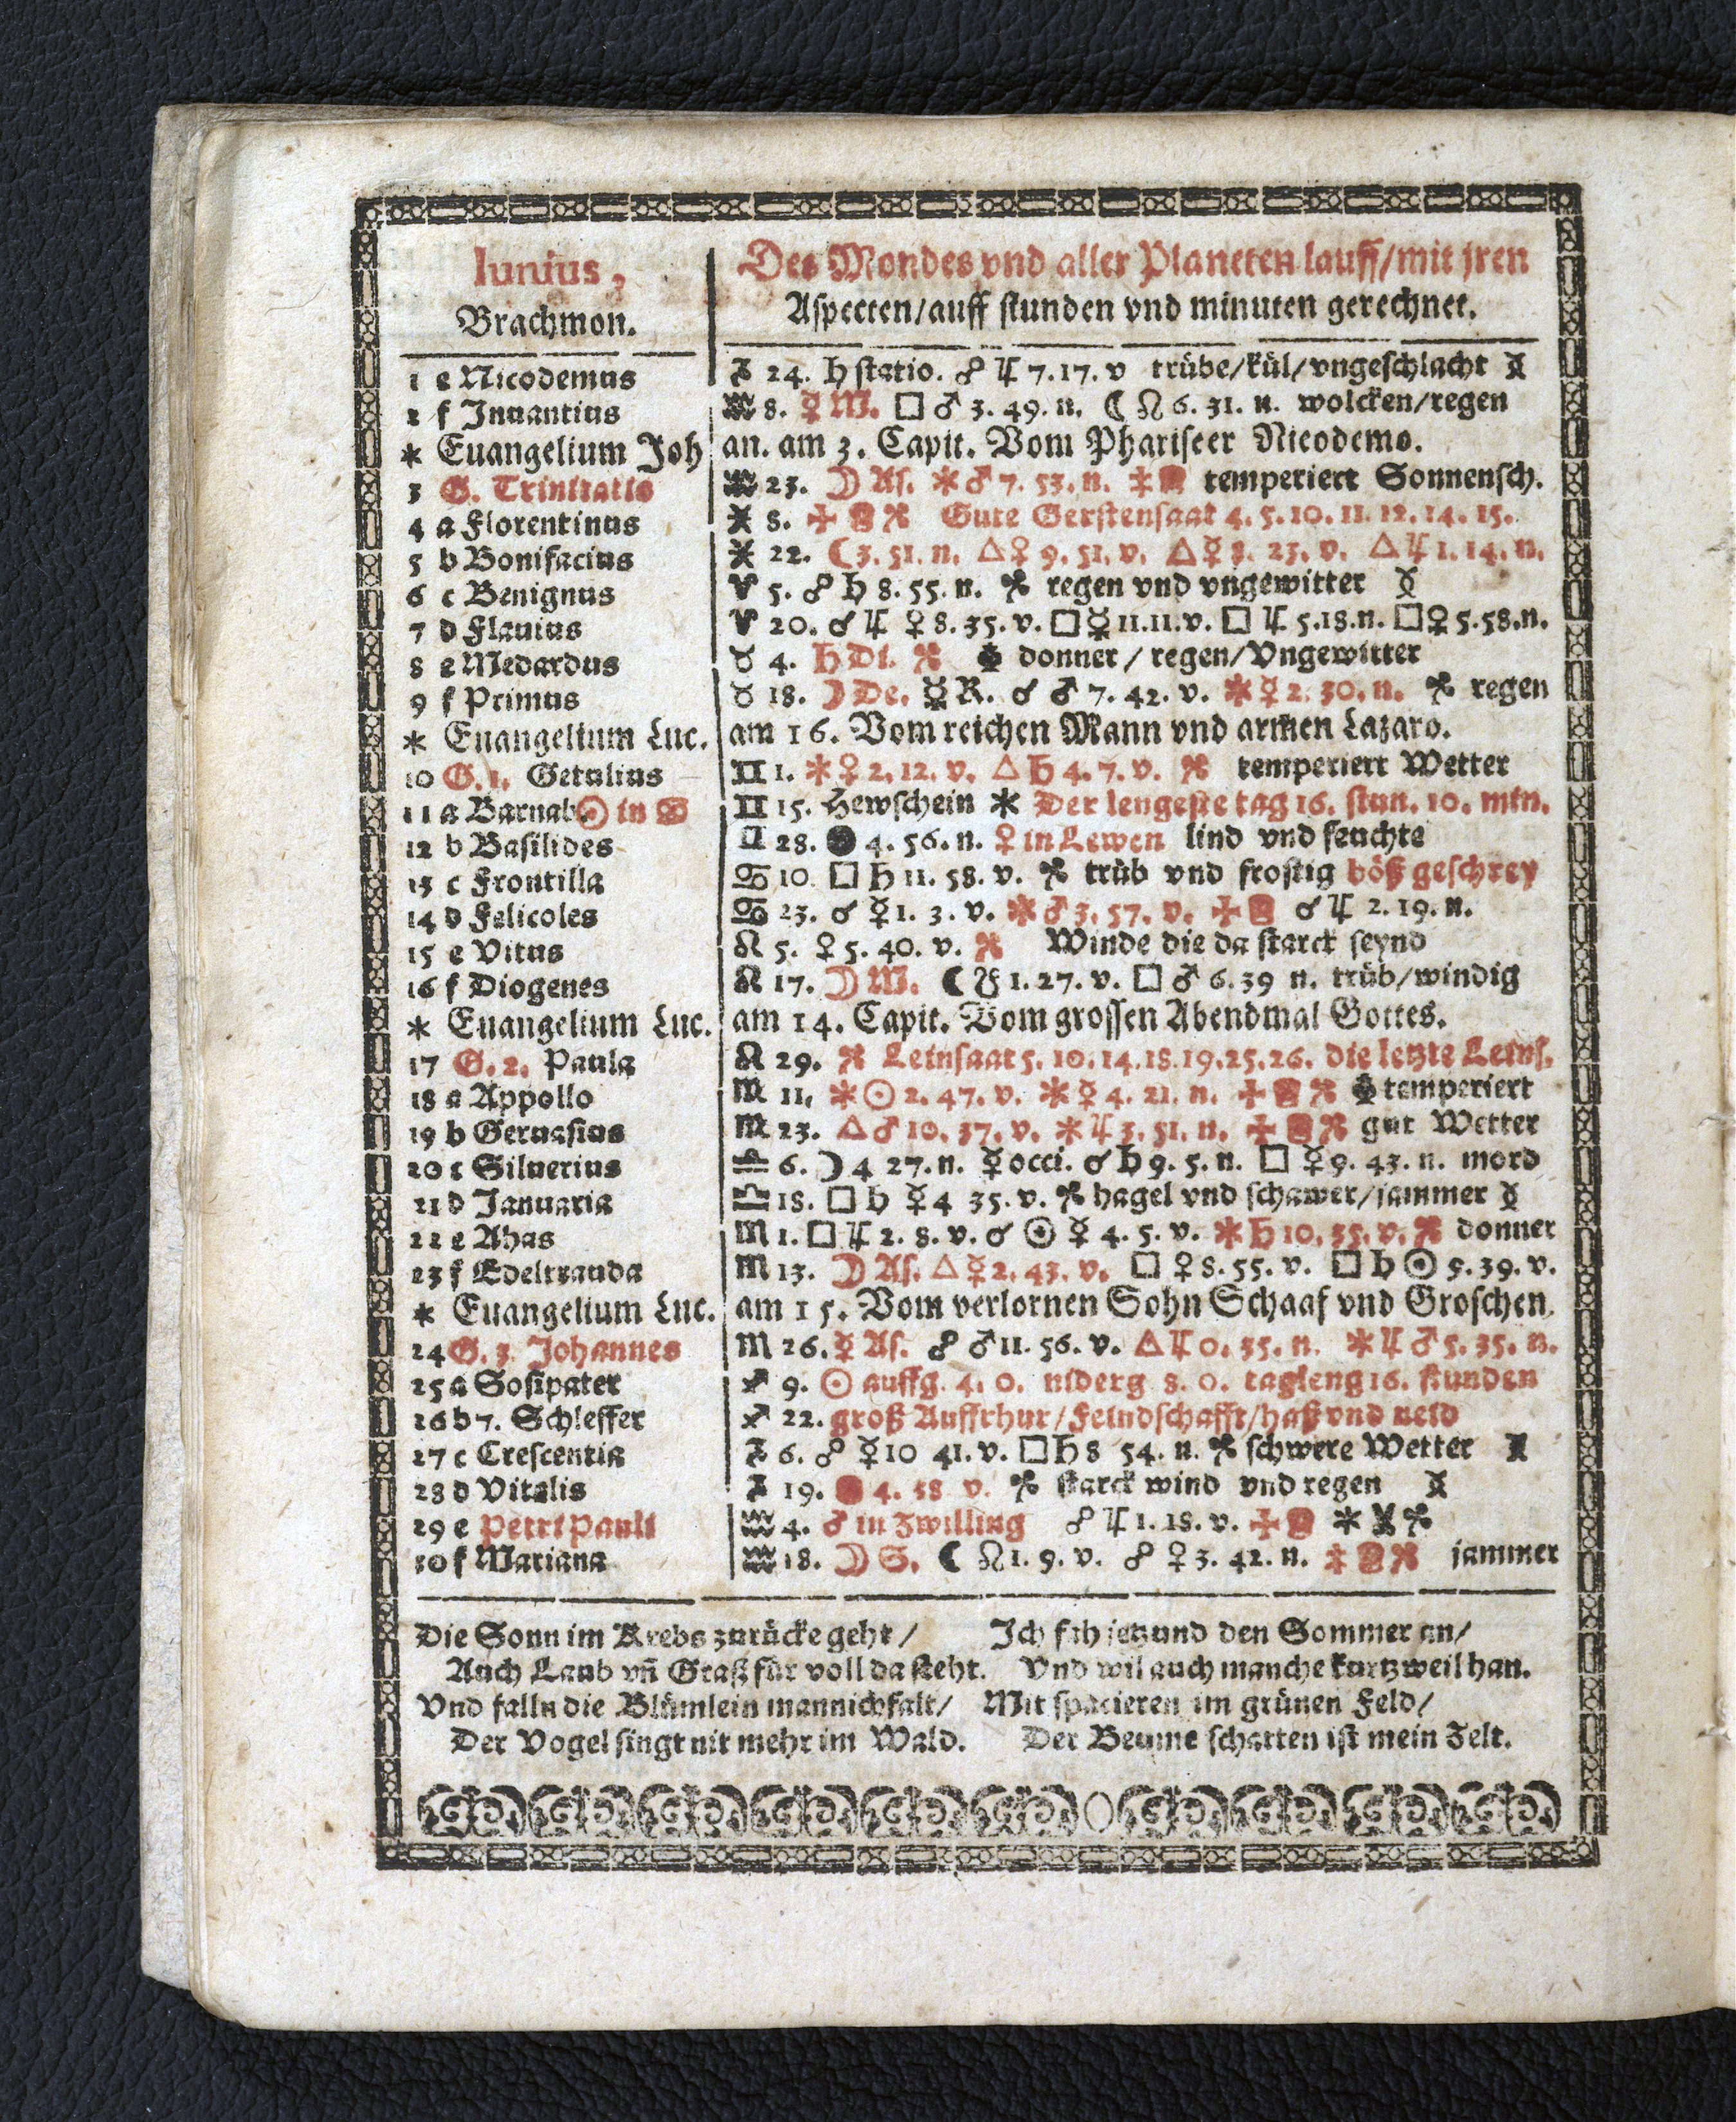 Iunius,
Brachmon.
Des Mondes vnd aller Planeten lauff/mit jren
Aspecten/auff stunden vnd minuten gerechnet.
1 e Nicodemus ♑ 24. ♄ statio. ☍ ♃ 7.17. v trübe/kül/vngeschlacht
2 f Inuantius ♒ 8. ☿ M. □ ♂ 3. 49. n. ☾ ☊ 6. 31. n. wolcken/regen
* Euangelium Joh an. am 3. Capit. Vom Phariseer Nicodemo.
3 G. Trinitatis ♒ 23. ☽ As. ✱ ♂ 7. 53. n. temperiert Sonnensch.
4 a Florentinus ♓ 8. Gute Gerstensaat 4. 5. 10. 11. 12. 14. 15.
5 b Bonifacius ♓ 22. ☾ 3. 51. n. △ ♀ 9. 51. v. △ ☿ 8. 23. v. △ ♃ 1. 14. n.
6 c Benignus ♈ 5. ☍ ♄ 8. 55. n. regen vnd vngewitter
7 d Flauius ♈ 20. ☌ ♃ ♀ 8. 35. v. □ ☿ 11.11. v. □ ♃ 5.18.n. □ ♀ 5.58.n.
8 e Medardus ♉ 4. ♄ Di. donner / regen/Vngewitter
9 f Primus ♉ 18. ☽ De. ☿ R. ☌ ♂ 7. 42. v. ✱ ☿ 2. 30. n. regen
* Euangelium Luc. am 16. Vom reichen Mann vnd armen Lazaro.
10 G. 1. Getulius ♊ 1. ✱ ♀ 2. 12. v. △ ♄ 4. 7. v. temperiert Wetter
11 a Barnab. ☉ in ♋ ♊ 15. Hewschein ✱ Der lengeste tag 16. stun. 10. min.
12 b Basilides ♊ 28. ● 4. 56. n. ♀ in Lewen lind vnd feuchte
13 c Frontilla ♋ 10 □ ♄ 11. 58. v. trüb vnd frostig böß geschrey
14 d Felicoles ♋ 23. ☌ ☿ 1. 3. v. ✱ ♂ 3. 57. v. ☌ ♃ 2. 19. n.
15 e Vitus ♌ 5. ♀ 5. 40. v. Winde die da starck seynd
16 f Diogenes ♌ 17. ☽ M. ☾ ☋ 1. 27. v. □ ♂ 6. 39 n. trüb/windig
* Euangelium Luc. am 14. Capit. Vom grossen Abendmal Gottes.
17 G. 2. Paula ♌ 29. Leinsaat 5. 10. 14. 18. 19. 25. 26. die letzte Leins.
18 a Appollo ♍ 11, ✱ ☉ 2. 47. v. ✱ ☿ 4. 21. n. temperiert
19 b Geruasius ♍ 23. △ ♂ 10. 37. v. ✱ ♃ 3. 51. n. gut Wetter
20 c Siluerius ♎ 6. ☽ 4 27. n. ☿ occi. ☌ ♄ 9. 5. n. □ ♀ 9. 43. n. mord
21 d Januaria ♎ 18. □ ♄ ☿ 4 35. v. hagel vnd schawer/jammer
22 e Ahas ♏ 1. □ ♃ 2. 8. v. ☌ ☉ ☿ 4. 5. v. ✱ ♄ 10. 35. v. donner
23 f Edeltrauda ♏ 13. ☽ As. △ ☿ 2. 43. v. □ ♀ 8. 55. v. □ ♄ ☉ 5. 39. v.
* Euangelium Luc. am 15. Vom verlornen Sohn Schaaf vnd Groschen.
24 G. 3. Johannes ♏ 26. ☿ As. ☍ ♂ 11. 56. v. △ ♃ 0. 35. n. ✱ ♃ ♂ 5. 35. n.
25 a Sosipater ♐ 9. ☉ auffg. 4. 0. niderg 8. 0. tagleng 16. stunden
26 b 7. Schleffer ♐ 22. groß Auffrhur/Feindschafft/haß vnd neid
27 c Crescentia ♑ 6. ☍ ☿ 10 41. v. □ ♄ 8 54. n. schwere Wetter
28 d Vitalis ♑ 19. 4. 58 v. starck wind vnd regen
29 e Petri Pauli ♒ 4. ♂ in Zwilling ☍ ♃ 1. 18. v.
30 f Mariana ♒ 18. ☽ S. ☾ ☊ 1. 9. v. ☍ ♀ 3. 42. n. jammer
Die Sonn im Krebs zurücke geht / Ich fah jetzund den Sommer an/
Auch Laub vñ Graß für voll da steht. Vnd wil auch manche kurtzweil han.
Vnd falln die Blümlein mannichfalt/ Mit spacieren im grünen Feld/
Der Vogel singt nit mehr im Wald. Der Beume schatten ist mein Zelt.